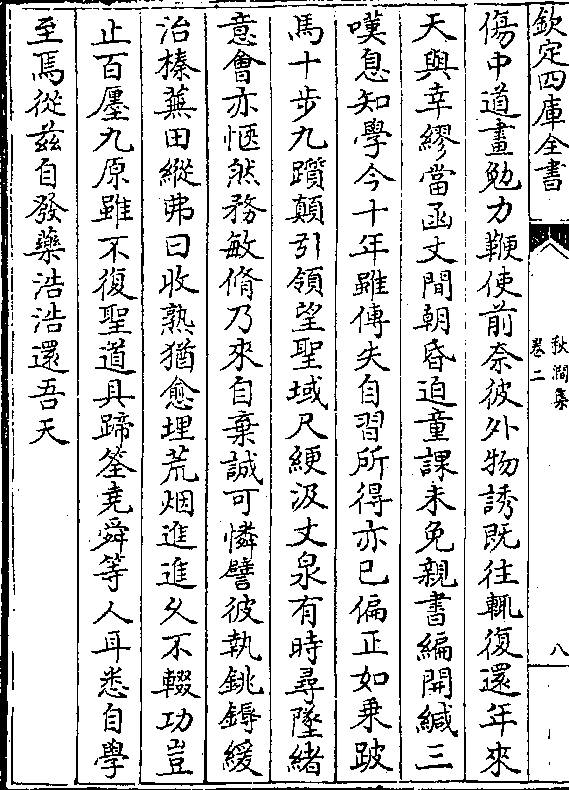 欽定四庫全書
秋澗集
卷二
八
傷中道畫勉力鞭使前奈彼外物誘既往輒復還年來
天與幸繆當函丈間朝昏迫童課未免親書編開緘三
嘆息知學今十年雖傳失自習所得亦已偏正如乗跛
馬十步九躓顛引領望聖域尺綆汲丈泉有時尋墜緒
意會亦惬然務敏脩乃來自棄誠可憐譬彼執銚鎒緩
治榛蕪田縱弗曰收熟猶愈埋荒烟進進乆不輟功豈
止百廛九原雖不復聖道具蹄筌堯舜等人耳悉自學
至焉從兹自發藥浩浩還吾天